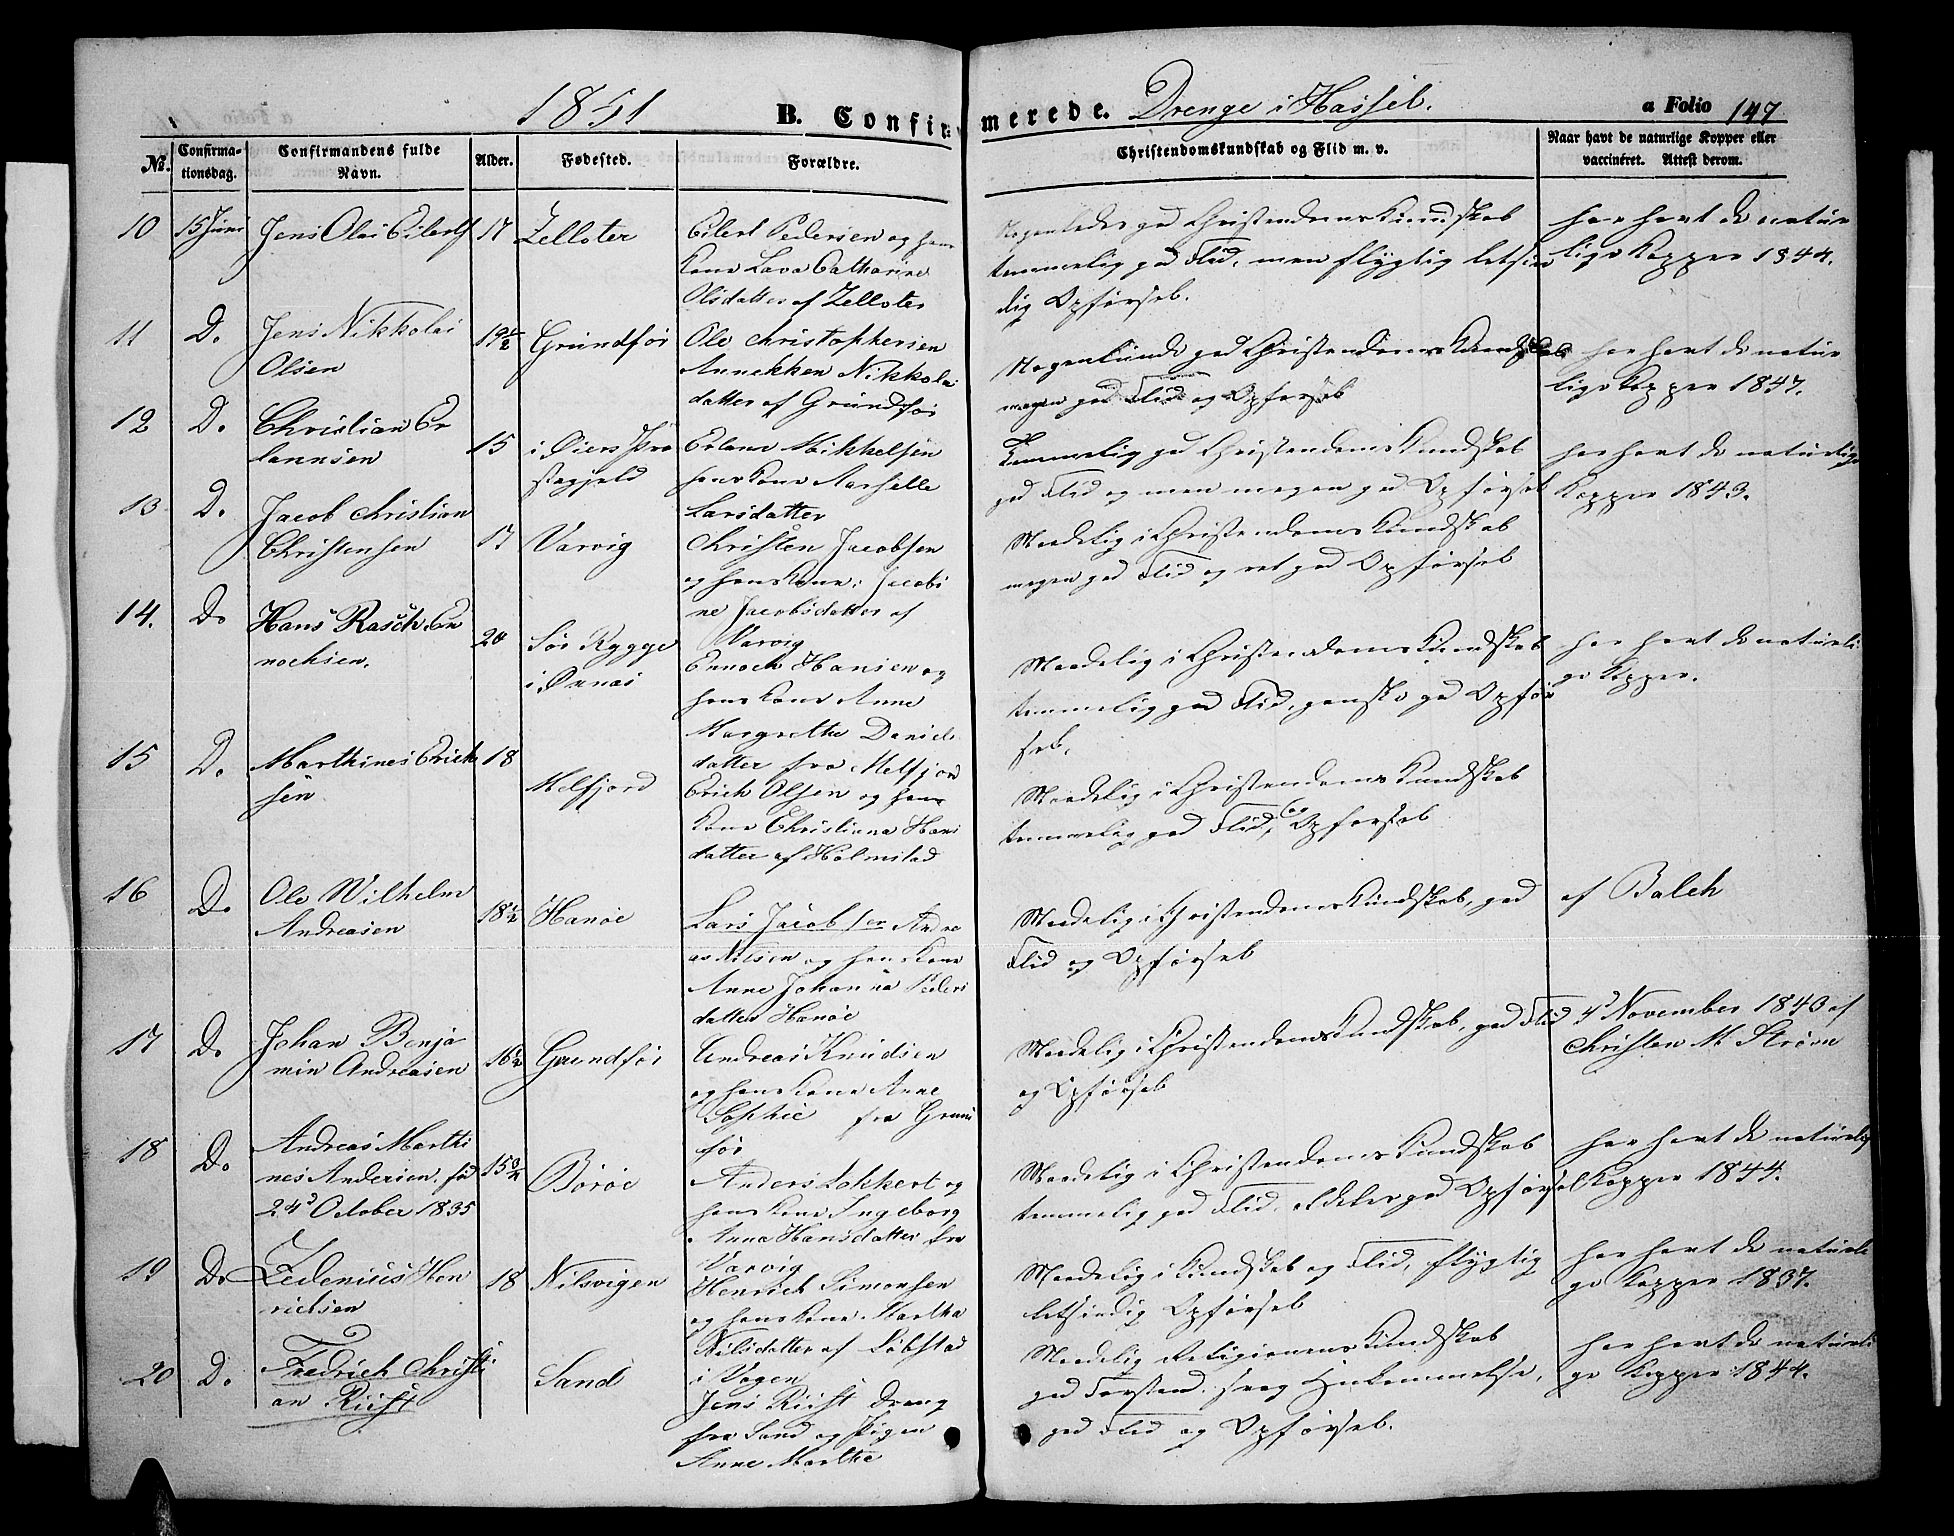 1851 B. Confirmerede. Drenge i Hassel. a Folio 147
No. Confirmationsdag. Confirmandens fulde Navn. Alder. Fødested. Forældre. Christendomskundskab og Flid m. v. Naar havt de naturlige Kopper eller vaccinéret. Attest derom.
10 15 Juni Jens Olai Eilerts 17 Zelloter
Eilert Pedersen og hans
Kone Lava Catharine
Olsdatter af Zelloter
Nogenledes god Christendoms Kundskab
temmelig god Flid, men flygtig letsin
dig Opførsel.
har havt de natur
lige Kopper 1844.
11 D. Jens Nikkolai
Olsen
19 1/2 Grundfør
Ole Christophersen
Annekken Nikkolai
datter af Grundfør
Nogenlunde god Christendoms Kundskab
megen god Flid og Opførsel
har havt de natur
lige Kopper 1847.
12 D. Christian Er
lannsen
15 i Øiers Præ
stegjeld
Erlans Mikkelsen
hans Kone
Larsdatter
Temmelig god Christendoms Kundskab
god Flid og men megen god Opførsel
har havt de naturlige
Kopper 1843.
13 D. Jacob Christian
Christensen
17 Varvig
Christen Jacobsen
og hans Kone Jacobi
ne Jacobsdatter af
Varvig
Maadelig i Christendoms Kundskab
megen god Flid og ret god Opførsel
14. D. Hans Rasch En
nochsen.
20 Sør Rygge
i Ønnæs
Ennoch Hansen og
hans Kone Anne
Margrethe Daniels
datter fra Melfjor
Maadelig i Christendoms Kundskab
temmelig god Flid, ganske god Opfør
sel.
har havt de naturli
ge Kopper.
15 D. Marthines Erich
sen
18 Melfjord
Erich Olsen og hans
Kone Christianna Hans
datter af Holmstad
Maadelig i Christendoms Kundskab
temmelig god Flid, og Opførsel
16 D. Ole Wilhelm
Andreasen
18 1/2 Hanøe
Lars Jacobsen Andre
as Nilsen og hans Kone
Anne Johanna Peders
datter Hanøe
Maadelig i Christendoms Kundskab, god
Flid og Opførsel
af Balch
17 D. Johan Benja
min Andreasen
16 1/2 Grundfør
Andreas Knudsen
og hans Kone Anne
Sophie fra Grund
før
Maadelig i Christendoms Kundskab, god Flid
og Opførsel
4d November 1840 af
Christen M. Strøm
18 D. Andreas Marthi
nes Andersen, fød
24d October 1835
15 Børøe
Anders Lokkert og
hans Kone Ingeborg
Anna Hansdatter fra
Varvig
Maadelig i Christendoms Kundskab
temmelig god Flid, god Opførsel
har havt de naturlige
Kopper 1844.
19 D. Zedenius Hen
richsen
18 Nilsvigen
Henrich Simonsen
og hans Kone Martha
Nilsdatter af Løbstad
i Vogen
Maadelig i Kundskab og Flid, flygtig
letsindig Opførsel
har havt de naturli
ge Kopper 1837.
20 D. Fredrich Christi
an Riist
Sand
Jens Riist Dreng
fra Sand og Pigen
Anne Marthe
Maadelig Religions Kundskab
god Forstand, svag Hukommelse,
god Flid og Opførsel.
har havt de naturli
ge Kopper 1844.